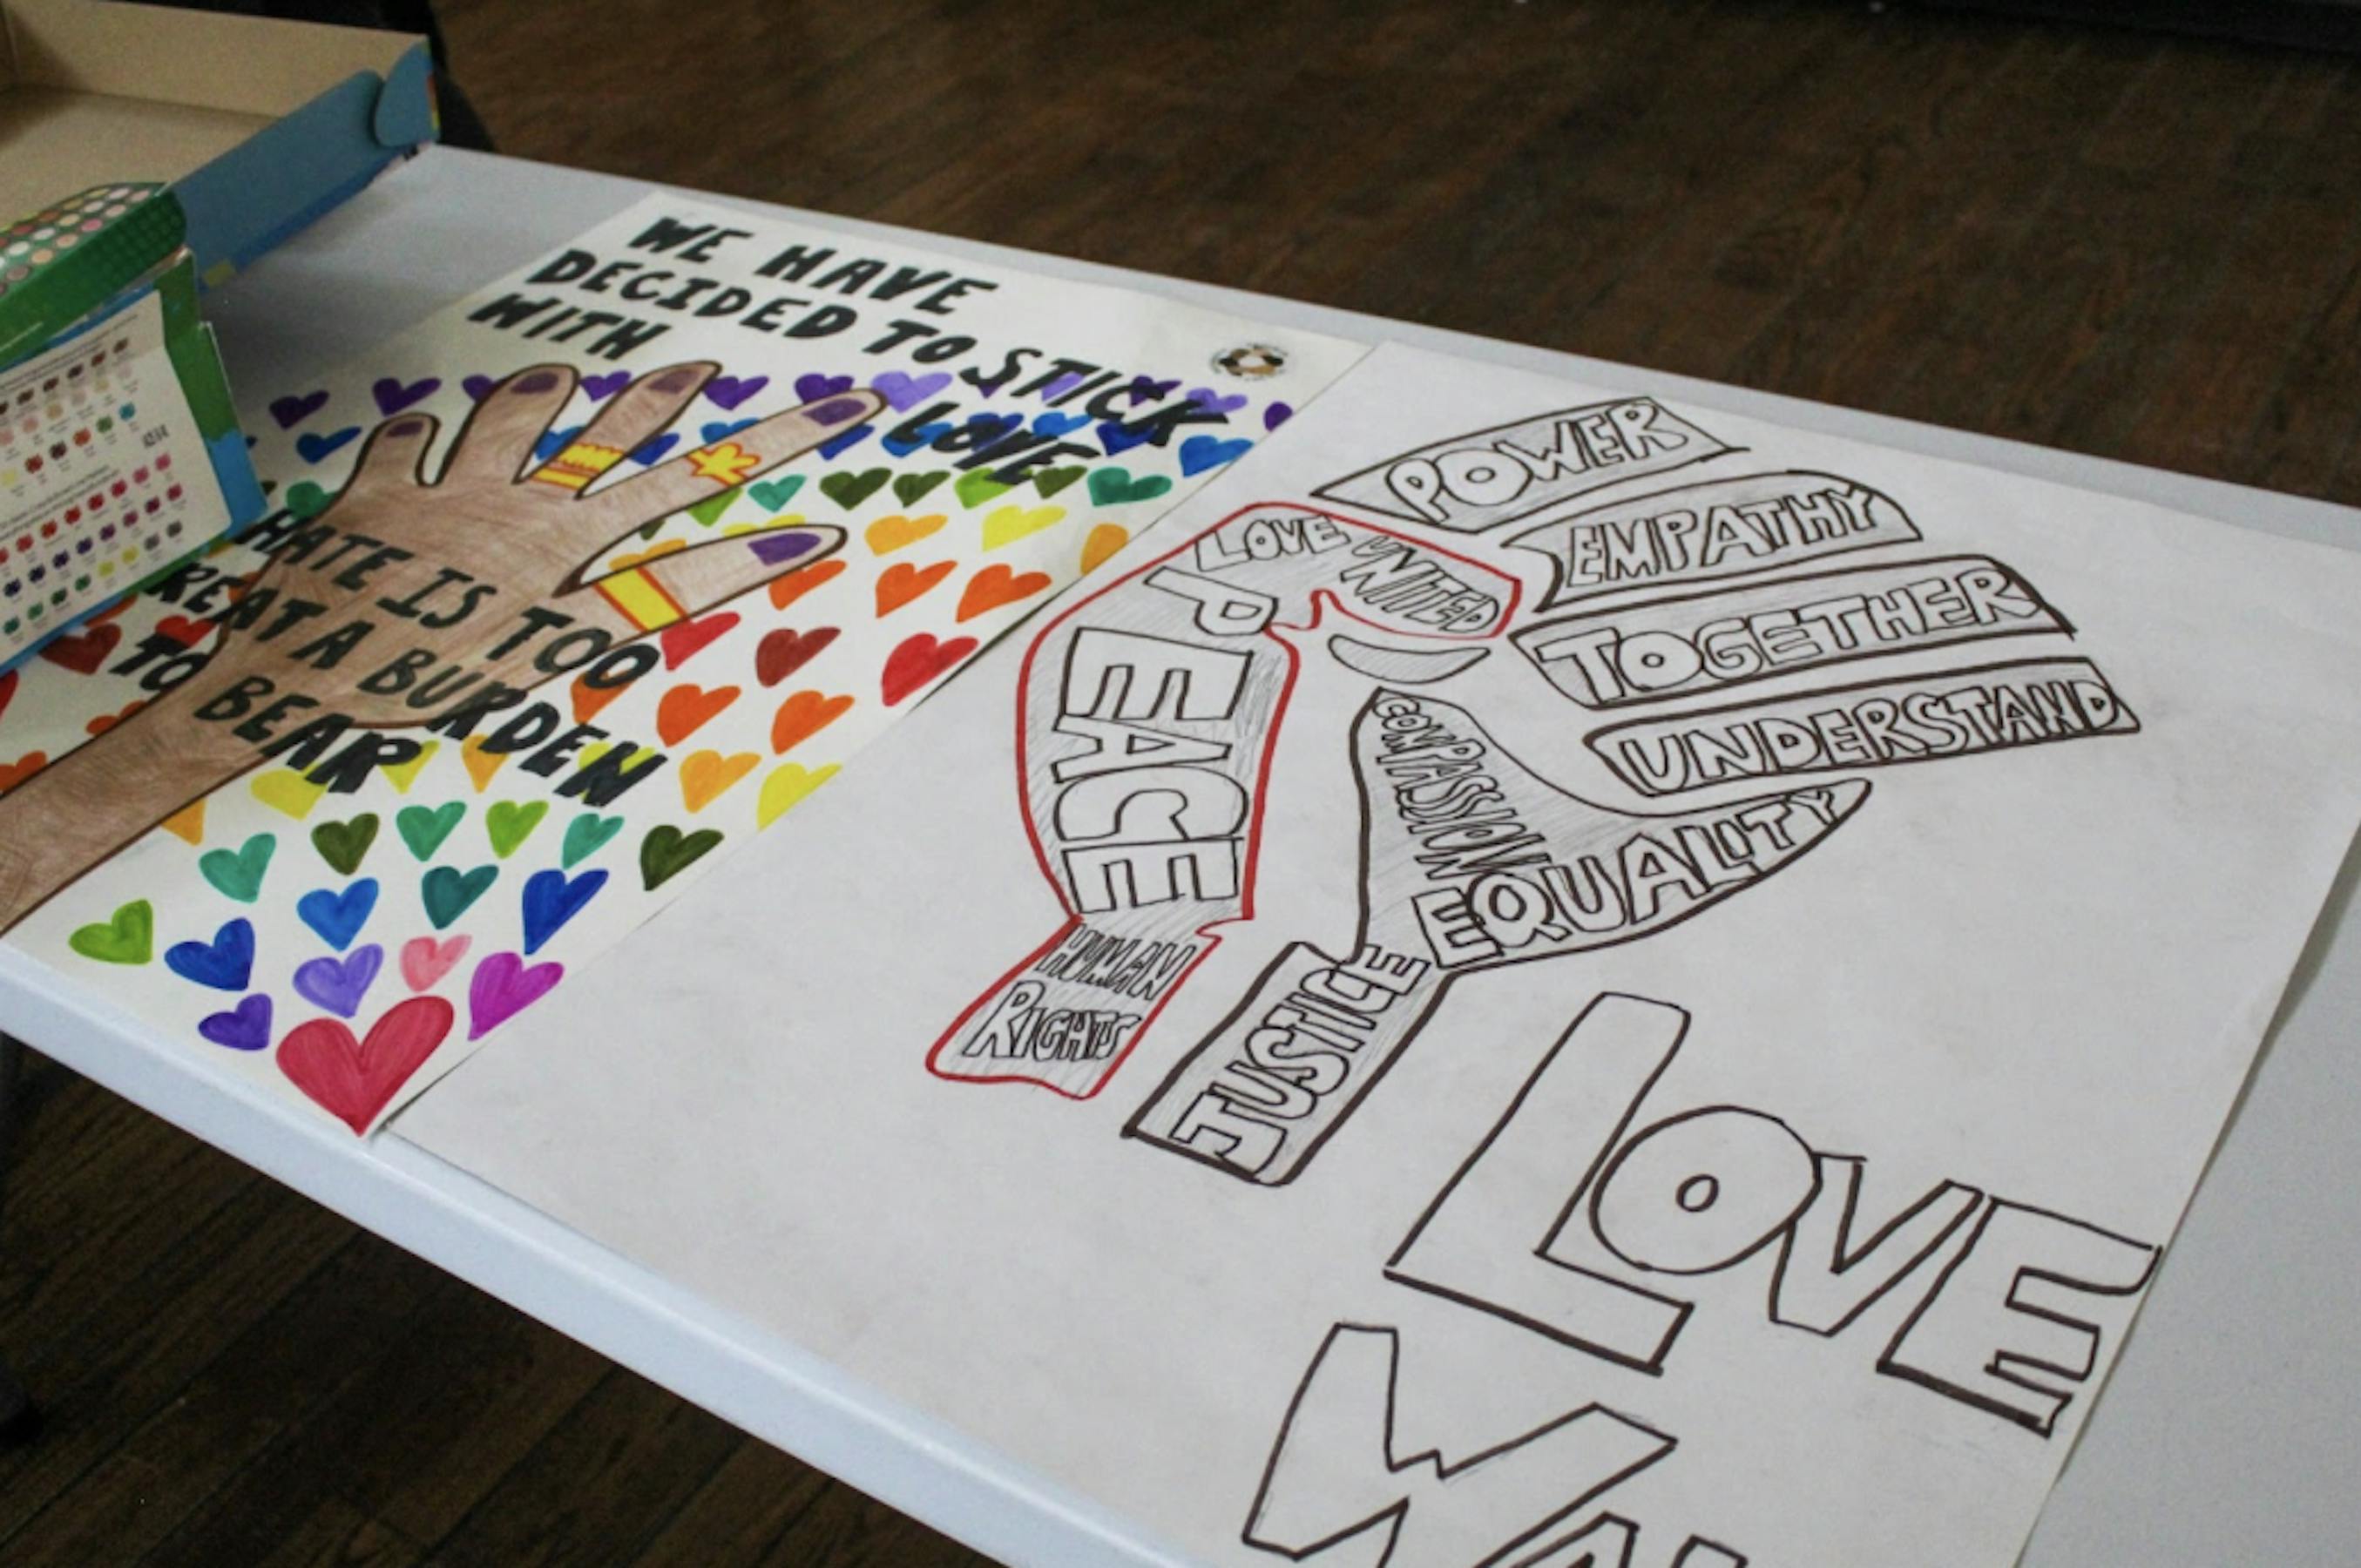 WE HAVE
DECIDED TO STICK
WITH LOVE
HATE IS TOO
REAT A BURDEN
TO BEAR
POWER
EMPATHY
TOGETHER
UNDERSTAND
LOVE UNITED
PEACE
HUMAN
RIGHTS
COMPASSION
EQUALITY
JUSTICE
LOVE